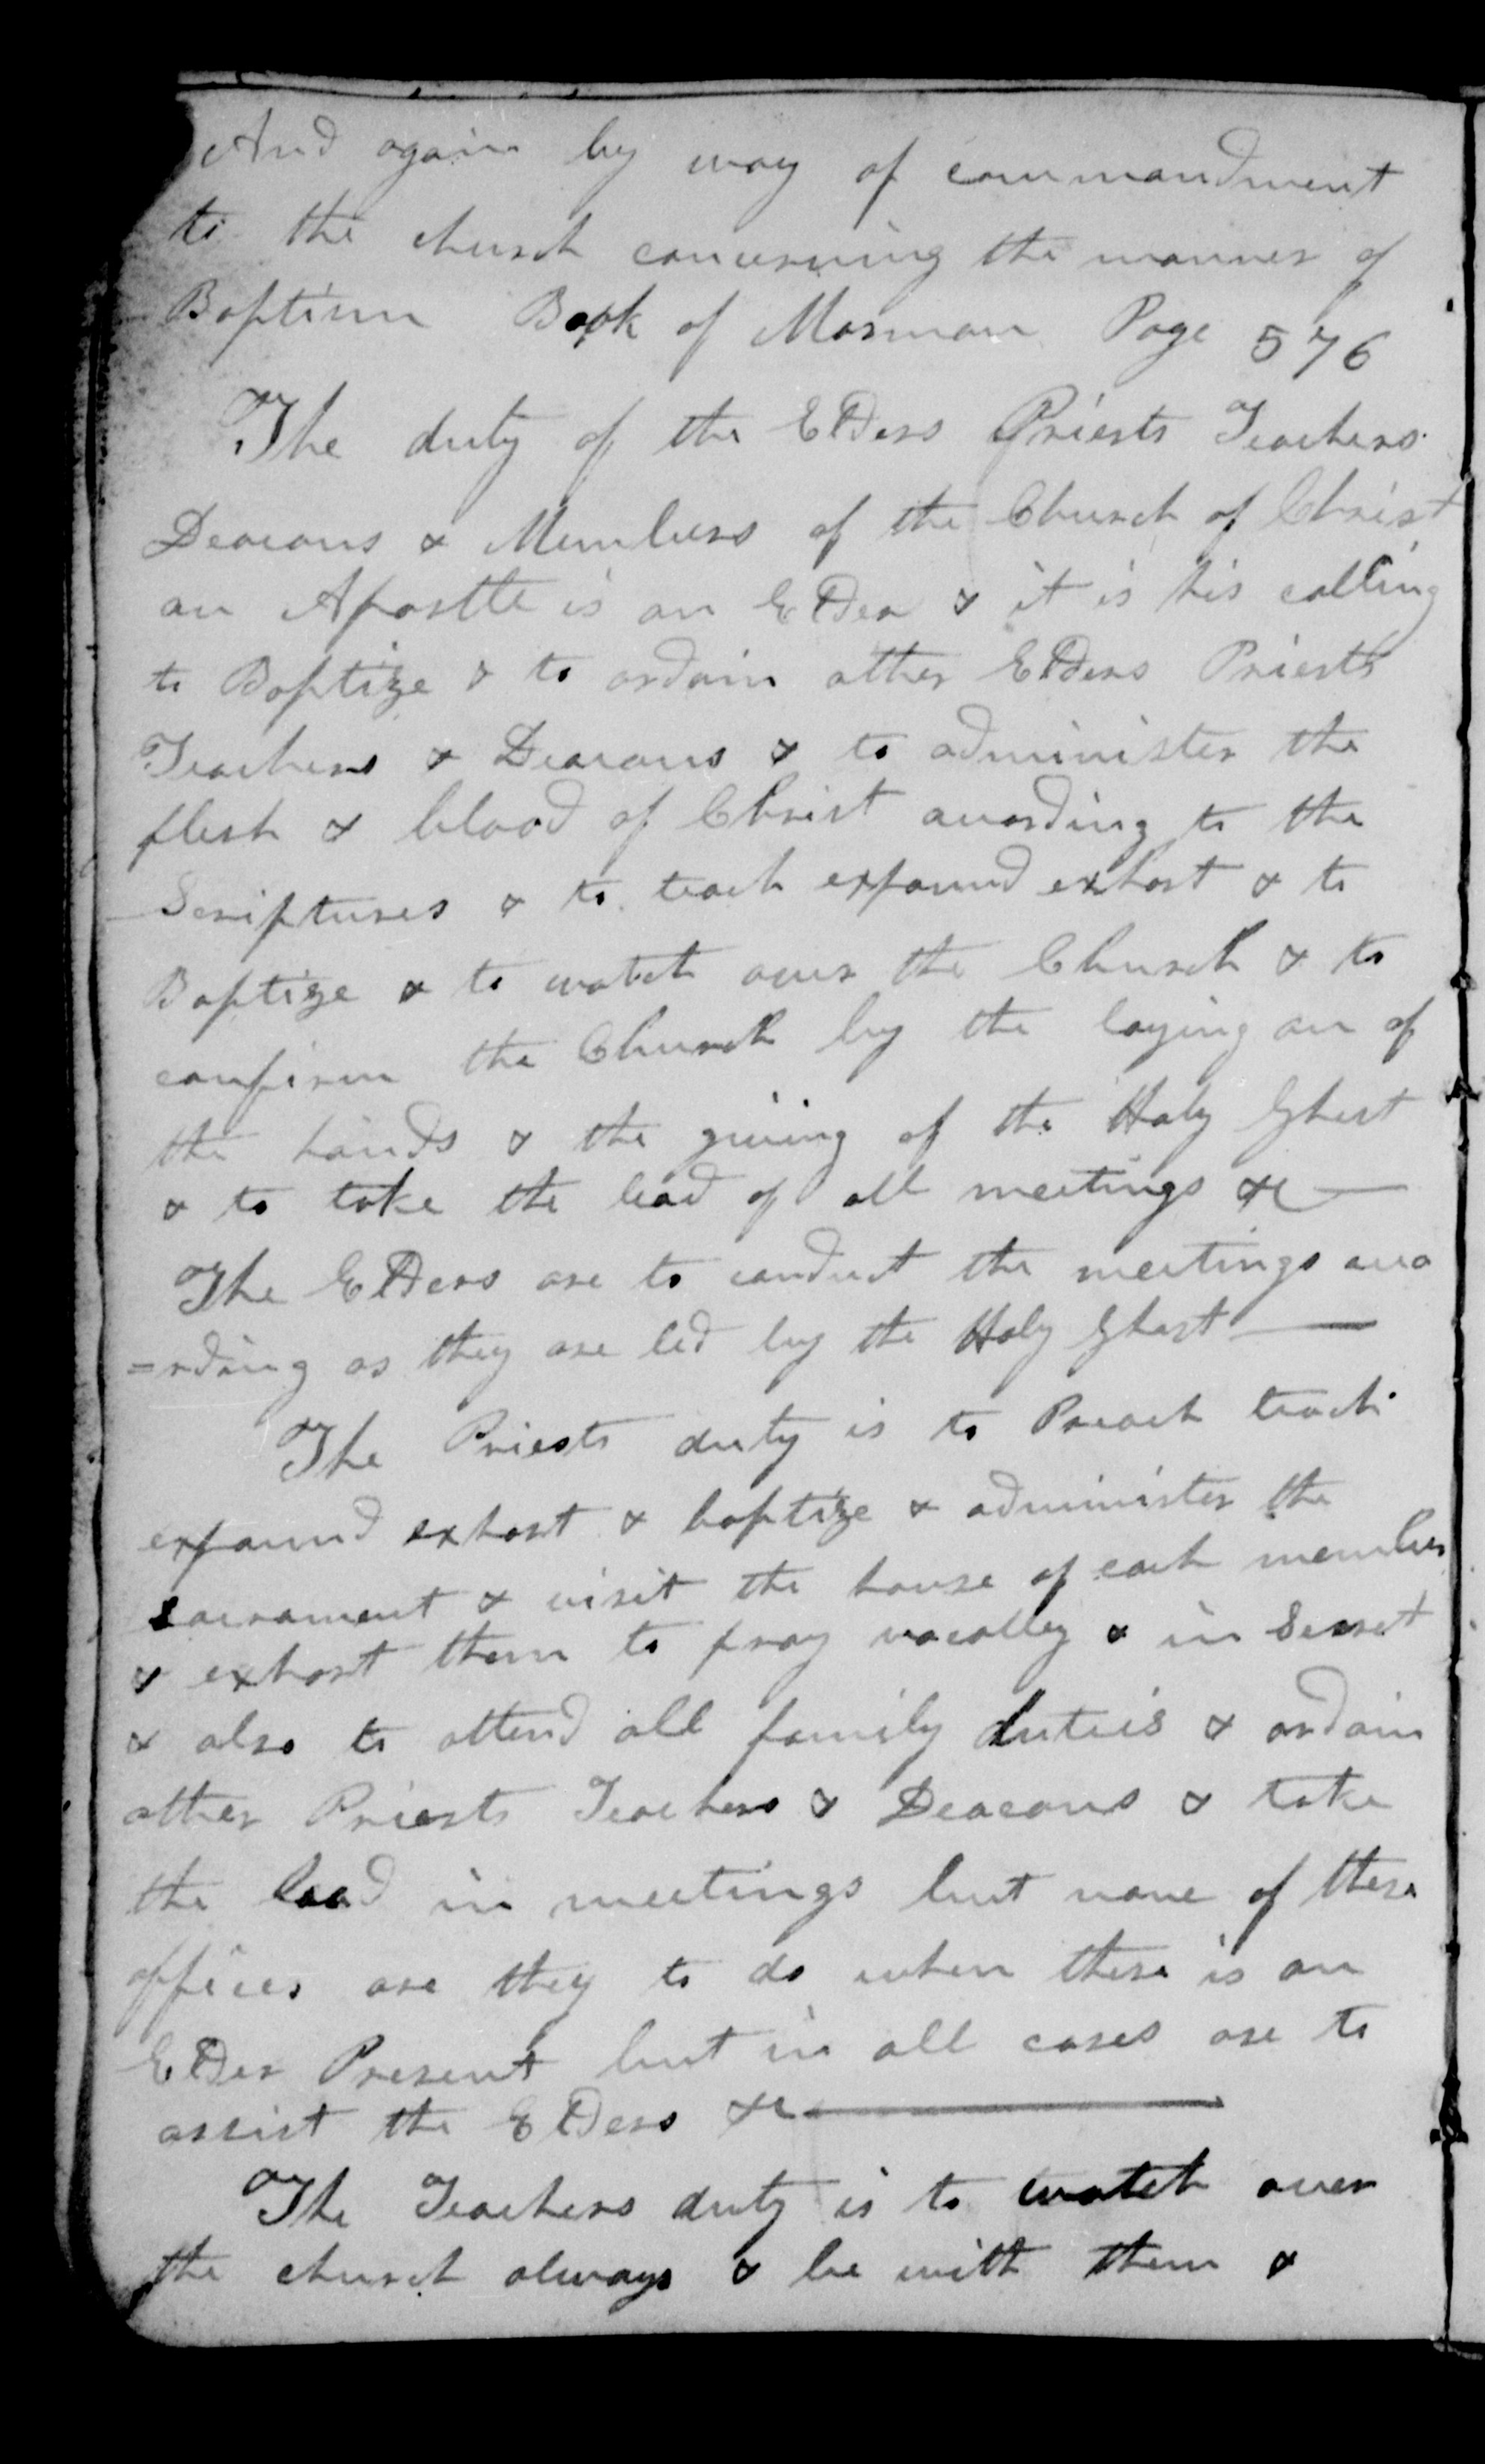 And again by way of commandment
to the church concerning the manner of
Baptism Book of Mormon Page 576
The duty of the Elders Priests Teachers
Deacons & Members of the Church of Christ
an Apostle is an Elder & it is his calling
to Baptize & to ordain other Elders Priests
Teachers & Deacons & to administer the
flesh & blood of Christ according to the
Scriptures & to teach expound exhort & to
Baptize & to watch over the Church & to
confirm the Church by the laying on of
the hands & the giving of the Holy Ghost
& to take the lead of all meetings &c —
The Elders are to conduct the meetings acco
=rding as they are led by the Holy Ghost —
The Priests duty is to Preach teach
expound exhort & baptize & administer the
sacrament & visit the house of each member
& exhort them to pray vocally & in Secret
& also to attend all family duties & ordain
other Priests Teachers & Deacons & take
the lead in meetings but none of these
offices are they to do when there is an
Elder Present but in all cases are to
assist the Elders &c —
The Teachers duty is to watch over
the church always & be with them &